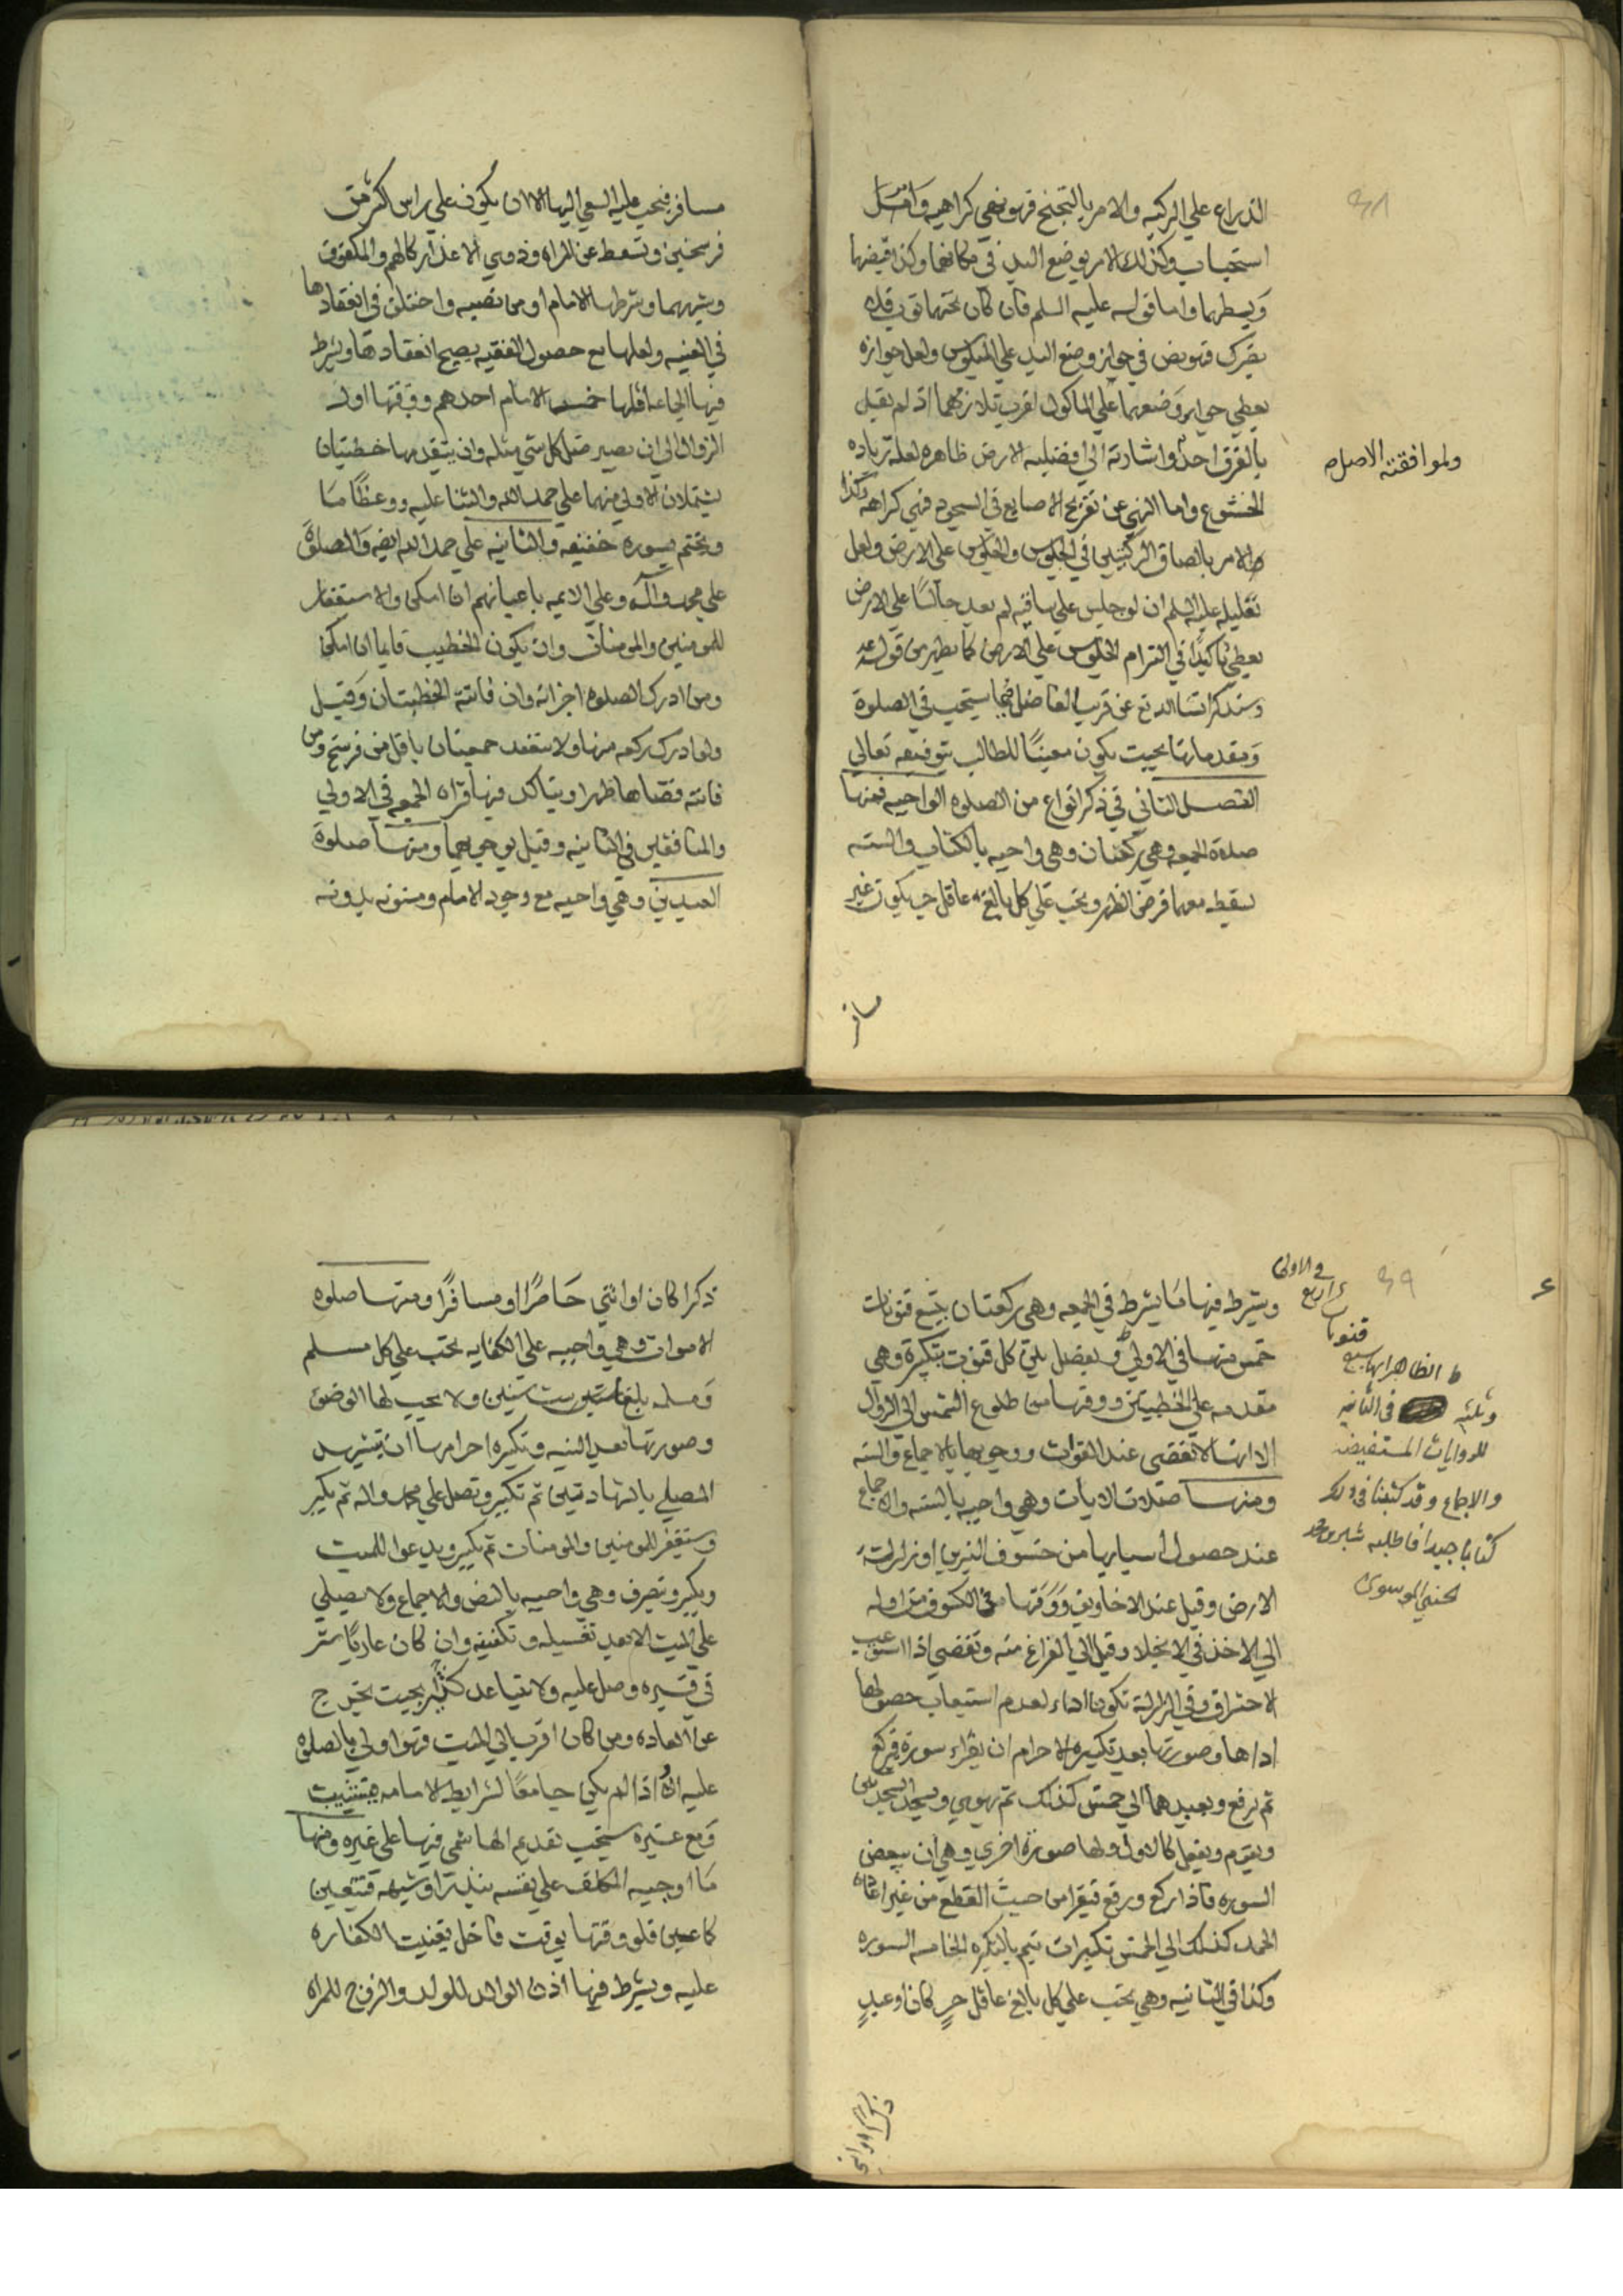 الذراع علي الركبه والامر بالتجنح فهو نفي كراهيه وامتثال
استحباب وكذلك الامر بوضع اليد في مكانهما وكذا قبضهما
وبسطهما واما قوله عليه السلم فان كان تحتهما ثوب فلا
يضرك فهو نص في جواز وضع اليد علي الملبوس ولعل جوازه
يعطي جواز وضعهما علي الماكول لقرب تلازمهما اذ لم يقل
بالفرق احد واشارته الي افضليه الارض ظاهره لعله زياده
ولموافقته الاصل صح
الخشوع واما النهي عن تفريج الاصابع في السجود فنهي كراهه وكذا
الامر بالصاق الركبتين في الجلوس والجلوس علي الارض ولعل
تعليله عليه السلم ان لو جلس علي ساقيه لم يعد جالسا علي الارض
يعطي تاكيدا في التزام الجلوس علي الارض كما يظهر من قوله
وسنذكر انشا الله تع عن قريب الفاضل فيما يستحب في الصلوة
ومقدماتها بحيث يكون معينا للطالب بتوفيقه تعالي
الفصل الثاني في ذكر انواع من الصلوه الواجبه فمنها
صلاة الجمعه وهي ركعتان وهي واجبه بالكتاب والسنه
يسقط معها فرض الظهر وتجب علي كل بالغ عاقل حر يكون غير
مسافر
مسافر فيجب عليه السعي اليها الا ان يكون علي راس اكثر من
فرسخين وتسقط عن المراه وذوي الاعذار كالهم والمكفوف
وشبههما وشرطها الامام او من نصبه واختلف في انعقادها
في الغيبه ولعلها مع حصول الفقيه يصح انعقادها وشرط
فيها الجماعه اقلها خمسه الامام احدهم ووقتها اول
الزوال الي ان يصير ظل كل شي مثله وان يتقدمها خطبتان
يشتملان الاولي منهما علي حمد الله والثنا عليه ووعظا ما
ويختم بسوره خفيفه والثانيه علي حمد الله ايضه والصلوة
علي محمد واله وعلي الايمه باعيانهم ان امكن والاستغفار
للمومنين والمومنات وان يكون الخطيب قايما ان امكن
ومن ادرك الصلوه اجزاته وان فاتته الخطبتان وقيل
ولو ادرك ركعه منها ولا تنعقد جمعتان باقل من فرسخ ومن
فاتته قضاها ظهرا ويتاكد فيها قراه الجمعه في الاولي
والمنافقين في الثانيه وقيل بوجوبهما ومنها صلوة
العيدين وهي واجبه مع وجود الامام ومسنونه بدونه
ويشرط فيها ما يشرط في الجمعه وهي ركعتان بتسع قنوتات
خمس منها في الاولي ويفصل بين كل قنوت بتكبيره وهي
مقدمه علي الخطبتين ووقتها من طلوع الشمس الي الزوال
الا انها لا تقضي عند الفوات ووجوبها بالاجماع والسنه
ومنها صلات الايات وهي واجبه بالسنه والاجماع
عند حصول اسبابها من خسوف النيرين او زلزلة
الارض وقيل عند الاخاويف ووقتها في الكسوف من اوله
الي الاخذ في الانجلا وقيل الي الفراغ منه وتقضي اذا استوعب
الاحتراق وفي الزلزلة تكون اداء لعدم استيعاب حصولها
اداها وصورتها بعد تكبيره الاحرام ان يقراء سورة فيركع
ثم يرفع ويعيدهما الي خمس كذلك ثم يهوي ويسجد السجدتين
ويقوم ويفعل كالاول ولها صورة اخري وهي ان يبعض
السوره فاذا ركع ورفع فيقرا من حيث القطع من غير اعاده
الحمد كذلك الي الخمس تكبيرات يتم بالتكبيره الخامسه السوره
وكذا في الثانيه وهي تجب علي كل بالغ عاقل حر كان او عبد
في الاولي
اربع
قنوتا
ط الظاهر انها سبع
وثلثه في الثانيه
للروايات المستفيضه
والاجماع وقد كتبنا في ذلك
كتابا جيدا فاطلبه شبر بن محمد
الحسني الموسوي
ذكرا كان او انثي
ذكرا كان او انثي حاضرا او مسافرا ومنها صلوه
الاموات وهي واجبه علي الكفايه تجب علي كل مسلم
ومسلمه بلغا ست سنين ولا يجب لها الوضو
وصورتها بعد النيه وتكبيره احرامها ان يتشهد
المصلي بالشهادتين ثم تكبر وتصل علي محمد واله ثم يكبر
وستغفر للمومنين والمومنات ثم يكبر ويدعوا للميت
ويكبر وتصرف وهي واجبه بالنص والاجماع ولا يصلي
علي الميت الا بعد تغسيله وتكفينه وان كان عاريا ستر
في قبره وصل عليه ولا يتباعد كثيرا بحيث يخرج
عن العاده ومن كان اقرب الي الميت فهو اولي بالصلوه
عليه اذا لم يكن جامعا لشرايط الامامه
ومع غيره يستحب تقديم الهاشمي فيها علي غيره ومنها
ما اوجبه المكلف علي نفسه بنذر او شبهه فتتعين
كما عين فلو وقتها بوقت فاخل تعينت الكفاره
عليه ويشرط فيها اذن الوالد للولد والزوج للمراه